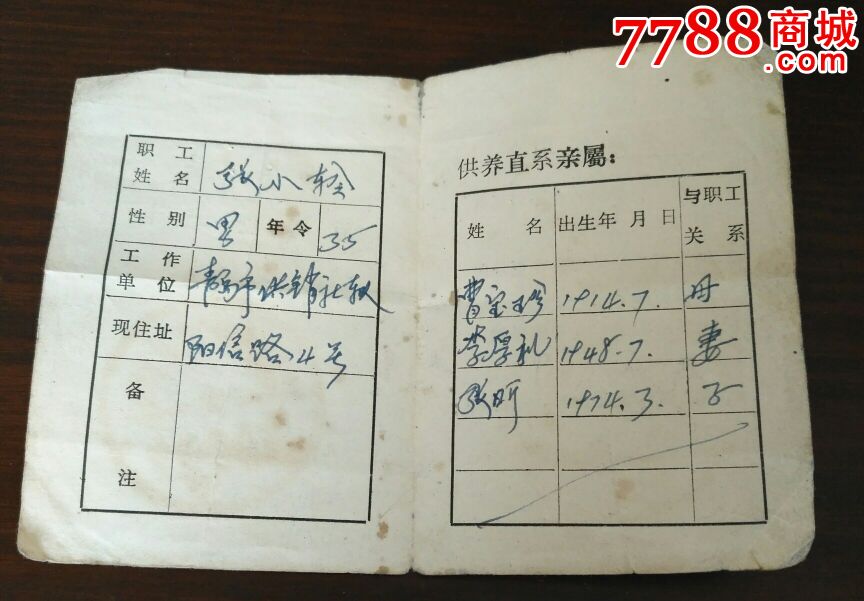 7788商城
.com
职工
姓名 张小
性别 男 年令 35
工作
单位 青岛市供销社
现住址 阳信路4号
备
注
供养直系亲屬:
姓名 出生年月日 与职工
关系
曹宝珍 1914.7. 母
1948.7. 妻
张昕 1974.3. 子